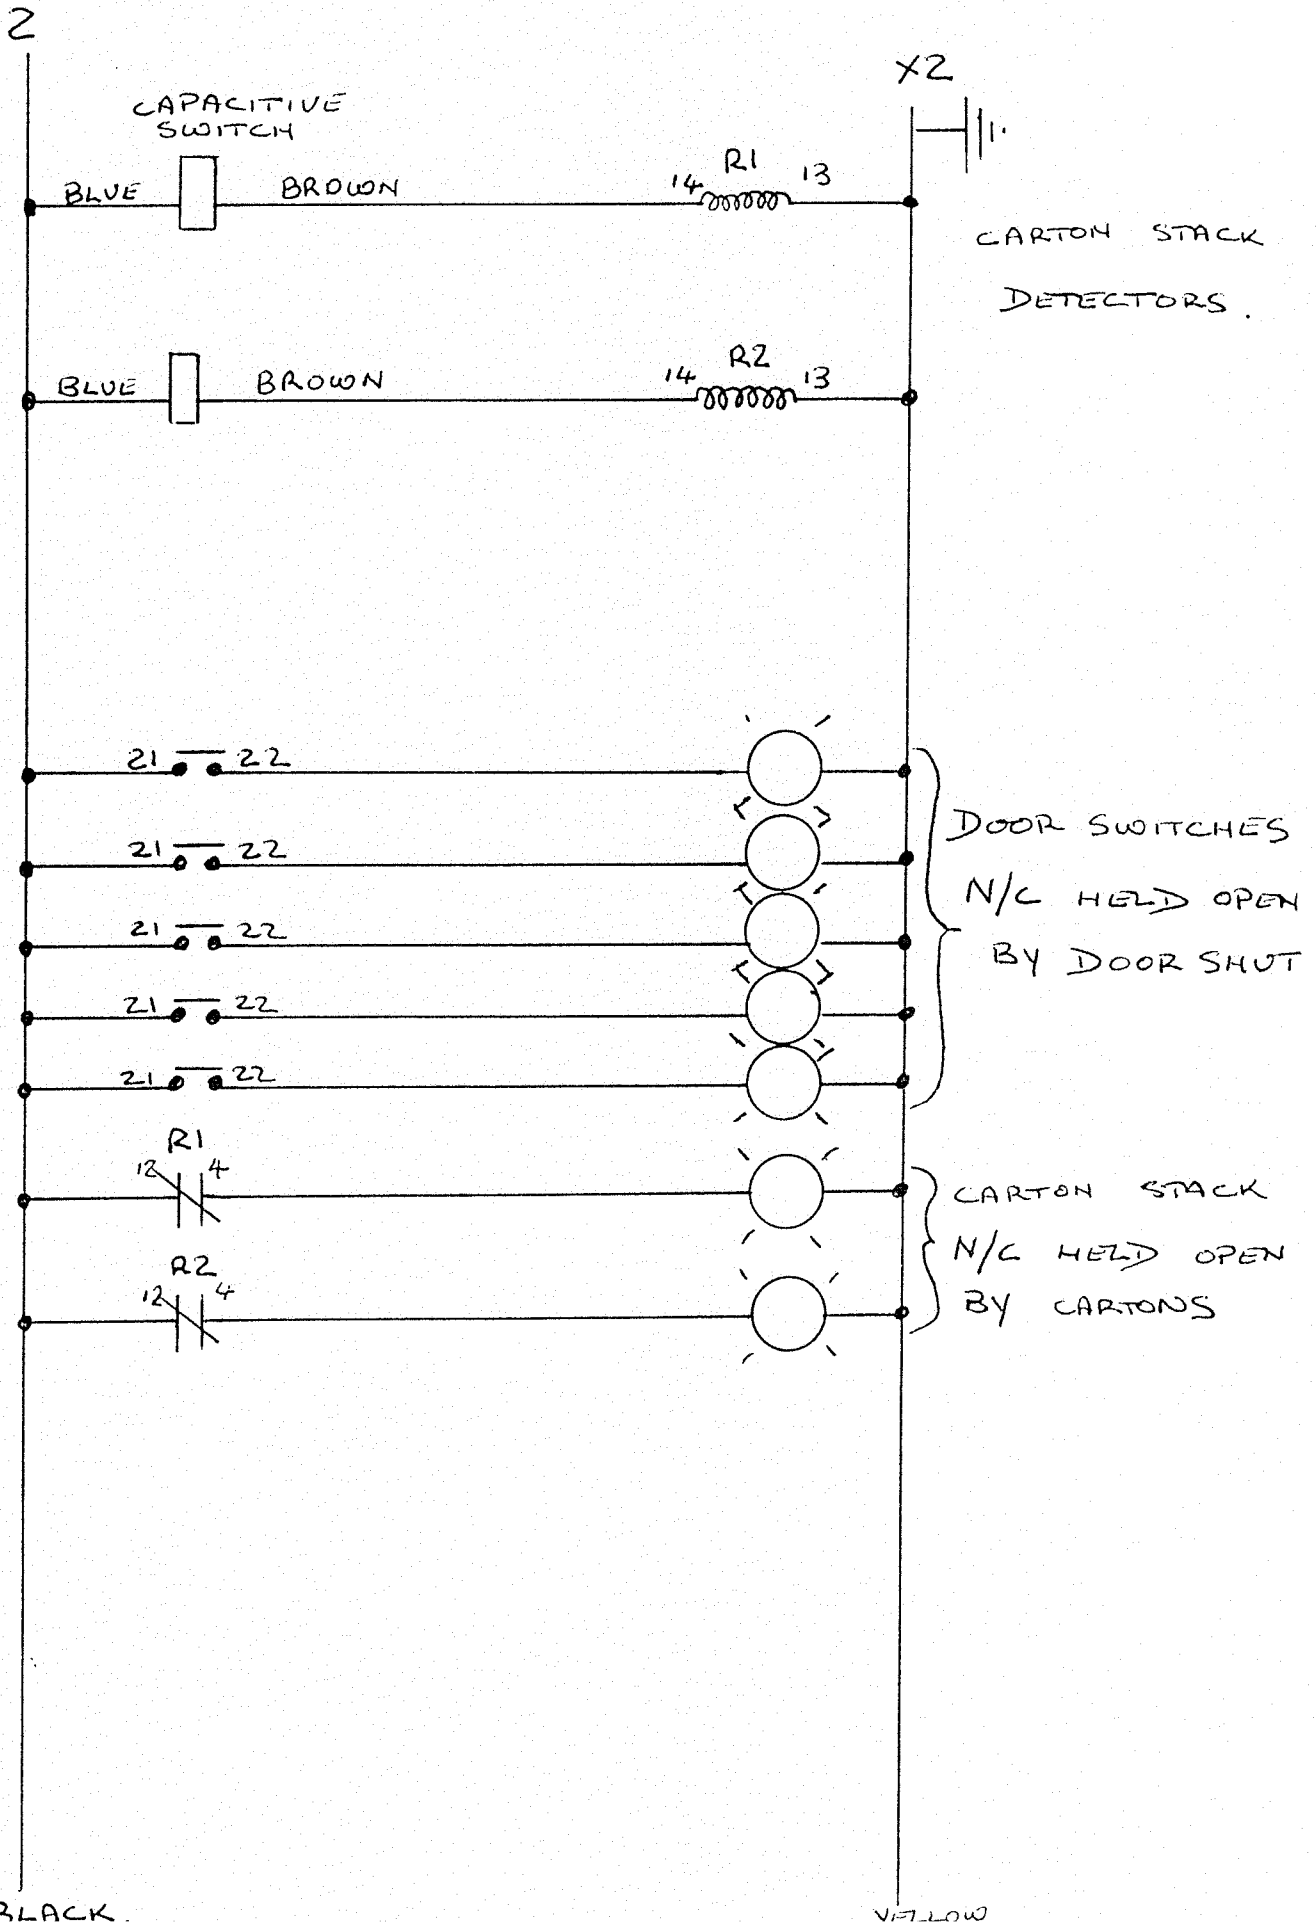 2
X2
CAPACITIVE
SWITCH
BLUE
BROWN
14
R1
13
CARTON STACK
DETECTORS.
BLUE
BROWN
14
R2
13
21
22
21
22
21
22
21
22
21
22
DOOR SWITCHES
N/C HELD OPEN
BY DOOR SHUT
R1
12
4
CARTON STACK
N/C HELD OPEN
BY CARTONS
R2
12
4
BLACK.
YELLOW